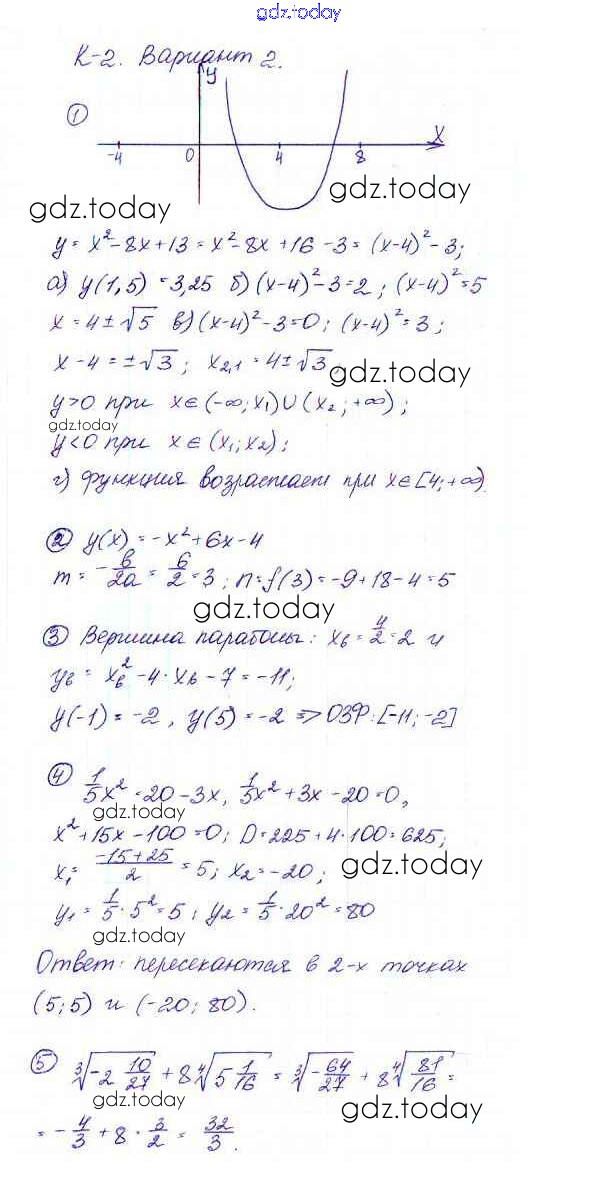 gdz.today
К-2. Вариант 2.
y
①
X
-4 0 4 8
gdz.today
gdz.today
y = x² - 8x + 13 = x² - 8x + 16 - 3 = (x-4)² - 3;
а) y(1,5) = 3,25 б) (x-4)² - 3 = 2; (x-4)² = 5
x = 4 ± √5 в) (x-4)² - 3 = 0; (x-4)² = 3;
x - 4 = ±√3; x₂,₁ = 4 ± √3
gdz.today
y > 0 при x ∈ (-∞; x₁) ∪ (x₂; +∞);
gdz.today
y < 0 при x ∈ (x₁; x₂);
г) функция возрастает при x ∈ [4; +∞)
② y(x) = -x² + 6x - 4
m = -b/2a = 6/2 = 3; n = f(3) = -9 + 18 - 4 = 5
gdz.today
③ Вершина параболы: xв = 4/2 = 2 и
yв = xв² - 4·xв - 7 = -11;
y(-1) = -2, y(5) = -2 => ОЗФ: [-11; -2]
④ 1/5x² = 20 - 3x, 1/5x² + 3x - 20 = 0,
gdz.today
x² + 15x - 100 = 0; D = 225 + 4·100 = 625;
x₁ = (-15+25)/2 = 5; x₂ = -20;
gdz.today
y₁ = 1/5 · 5² = 5; y₂ = 1/5 · 20² = 80
gdz.today
Ответ: пересекаются в 2-х точках
(5; 5) и (-20; 80).
⑤ ∛(-2 10/27) + 8∜(5 1/16) = ∛(-64/27) + 8∜(81/16) =
gdz.today
gdz.today
= -4/3 + 8 · 3/2 = 32/3.